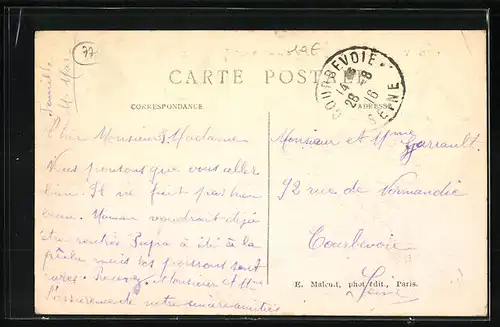 77
CARTE POSTALE
COURBEVOIE
14 8
28 - 16
SEINE
CORRESPONDANCE
ADRESSE
Famille
Cher Monsieur & Madame
Nous pensons que vous allez
bien. Il ne fait pas bien
beau. Maman voudrait déjà
être rentrée Papa a été à la
pêche mais les poissons sont
rares. Recevez Monsieur et Mme
l'assurance de notre sincère amitiés
Monsieur et Mme Garrault
92 rue de Normandie
Courbevoie
Seine
E. Malcuit, phot. édit., Paris.